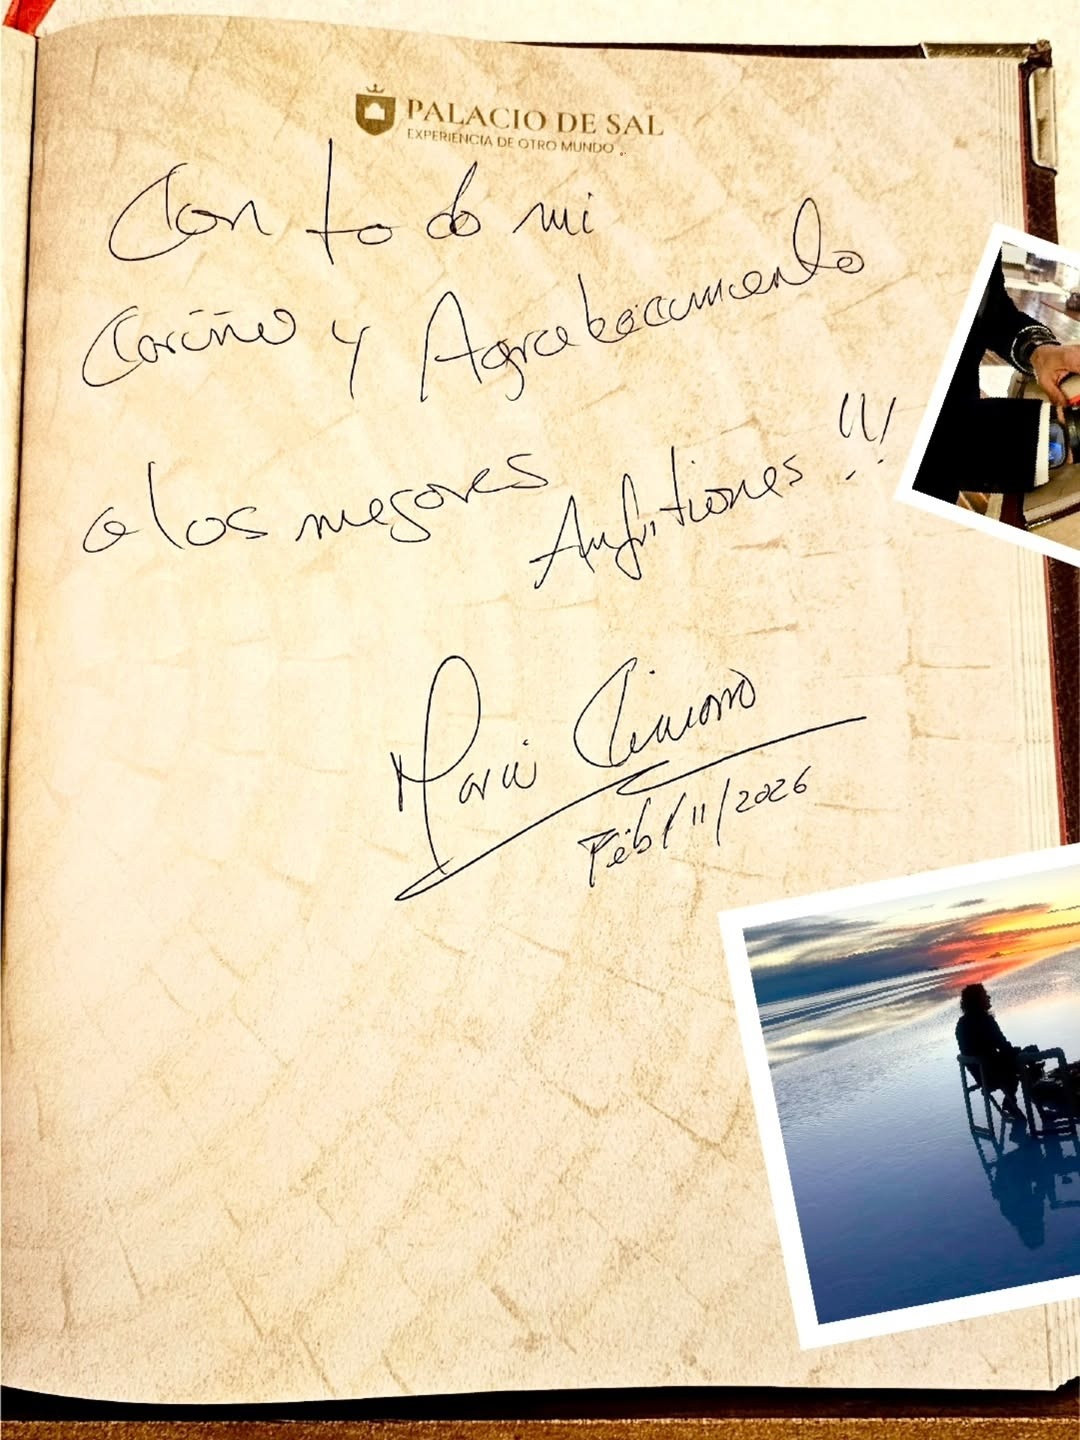 PALACIO DE SAL
EXPERIENCIA DE OTRO MUNDO
Con todo mi
Cariño y Agradecimiento
a los mejores
Anfitriones !!!
Feb/11/2026